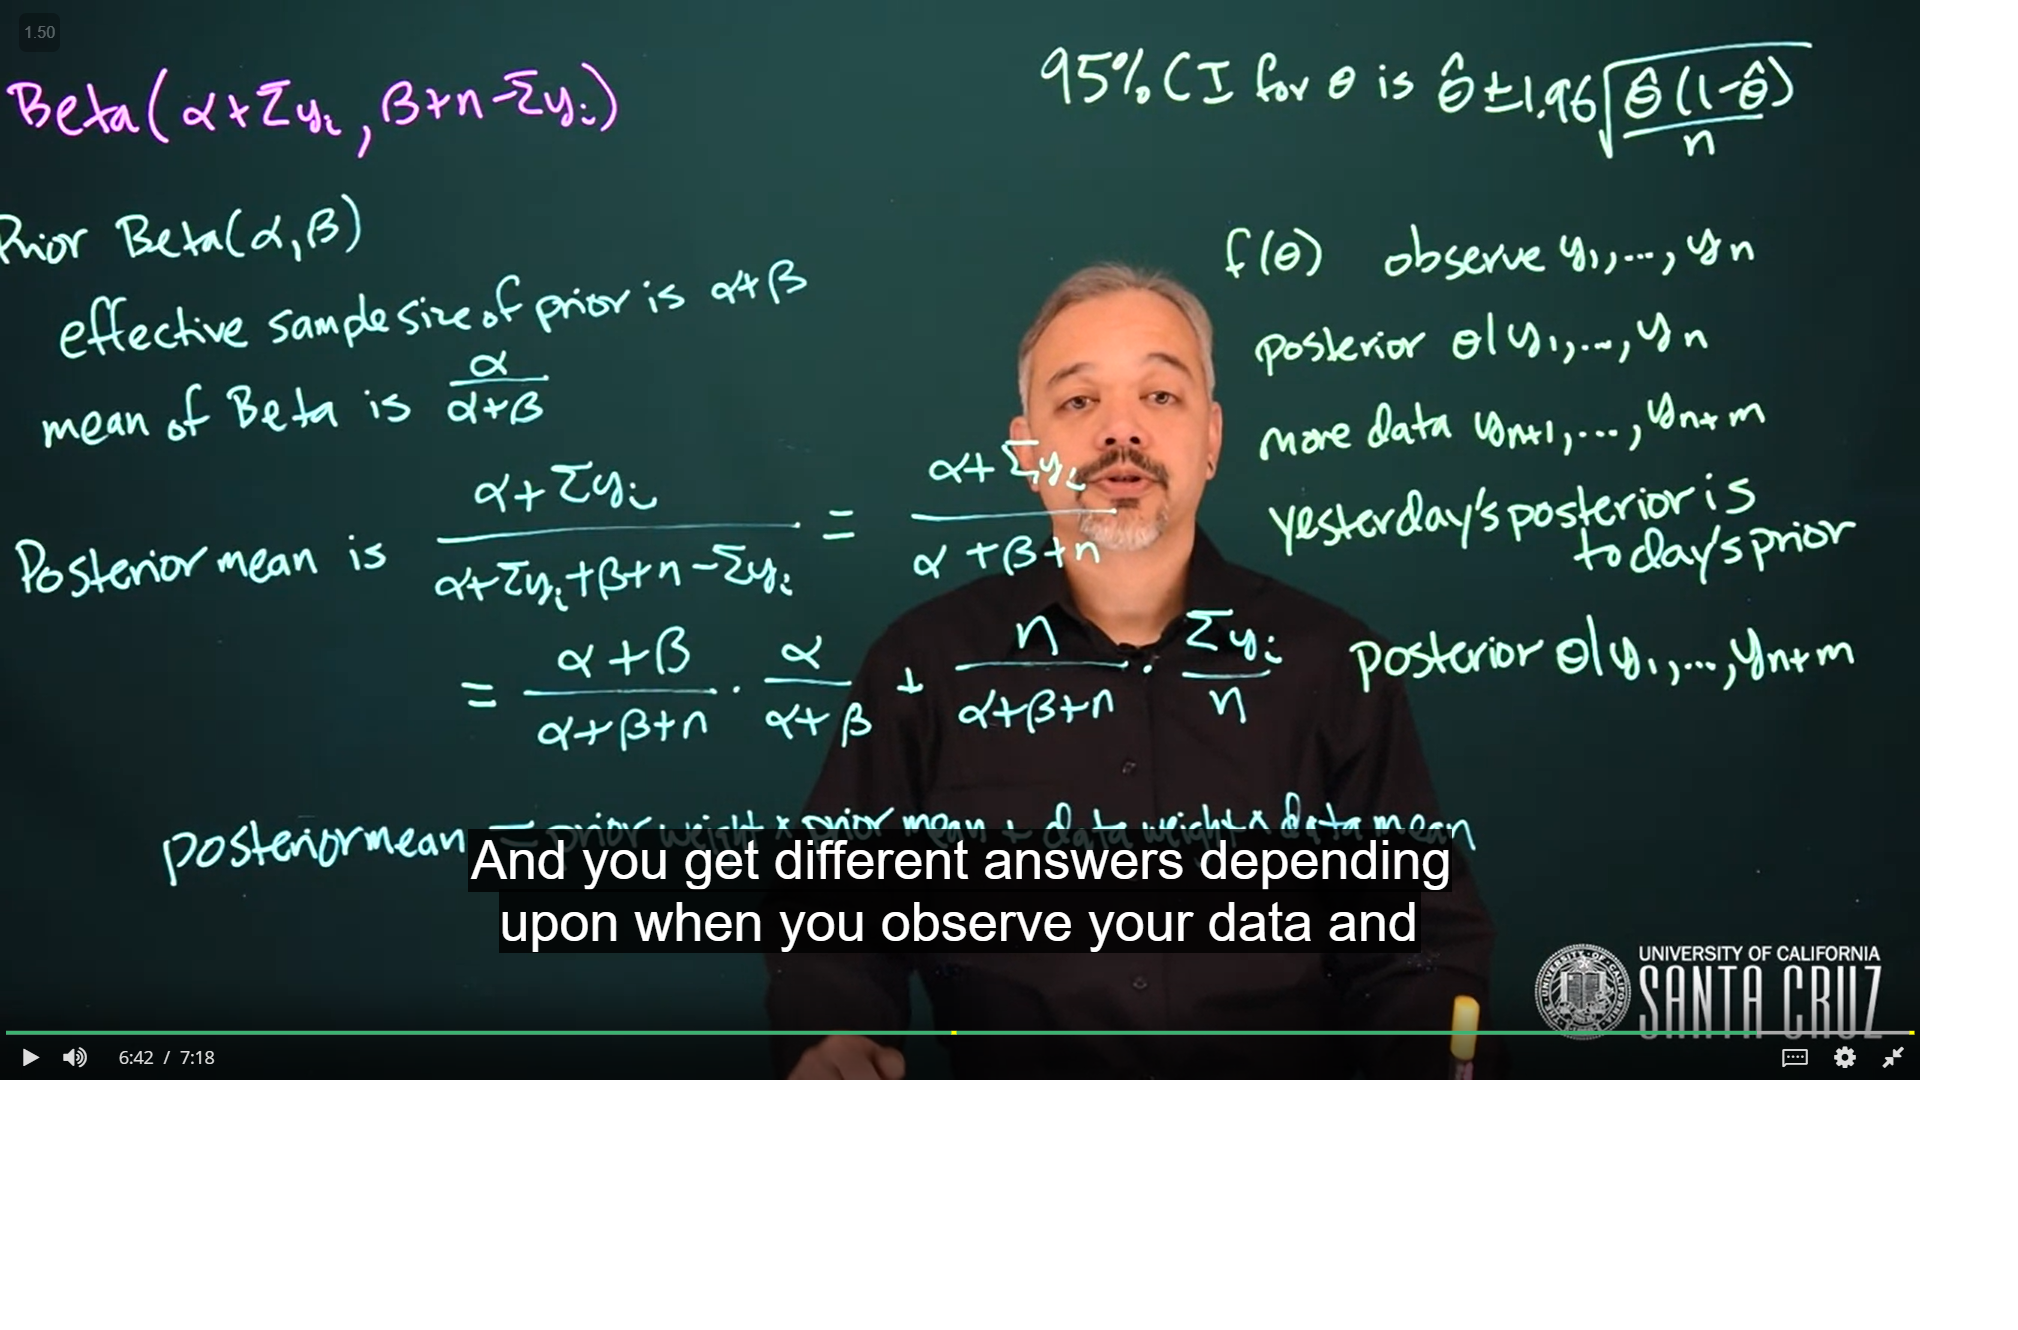 1.50
Beta(α+Σyᵢ, β+n-Σyᵢ)
95% CI for θ is θ̂ ± 1.96 √(θ̂(1-θ̂)/n)
Prior Beta(α,β)
effective sample size of prior is α+β
mean of Beta is α/(α+β)
Posterior mean is (α+Σyᵢ)/(α+Σyᵢ+β+n-Σyᵢ) = (α+Σyᵢ)/(α+β+n)
= (α+β)/(α+β+n) · α/(α+β) + n/(α+β+n) · Σyᵢ/n
posterior mean = prior weight × prior mean + data weight × data mean
f(θ) observe y₁,...,yₙ
posterior θ|y₁,...,yₙ
more data yₙ₊₁,...,yₙ₊ₘ
yesterday's posterior is
today's prior
posterior θ|y₁,...,yₙ₊ₘ
And you get different answers depending
upon when you observe your data and
UNIVERSITY OF CALIFORNIA
SANTA CRUZ
6:42 / 7:18